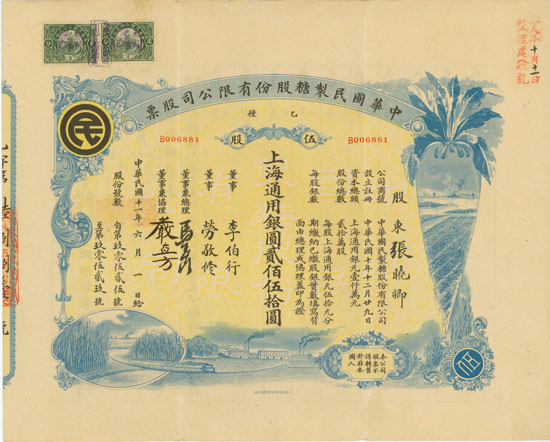 中華國民製糖股份有限公司股票
乙種
B006881 伍股 B006881
民
股東張曉卿
公司商號 中華國民製糖股份有限公司
設立註冊 中華民國十年十二月廿九日
資本總額 上海通用銀元壹仟萬元
股份總數 貳拾萬股
每股銀數 每股上海通用銀元伍拾元分
期繳納已繳股銀實數填寫背
面由總理或協理蓋印為證
上海通用銀圓貳佰伍拾圓
董事 李伯行
董事 勞敬修
董事兼總理
董事兼協理
中華民國十一年六月一日給
股份號數 自第玖零伍貳伍號
至第玖零伍貳玖號
本公司
股票不
得轉售
於非本
國人
十月十二日